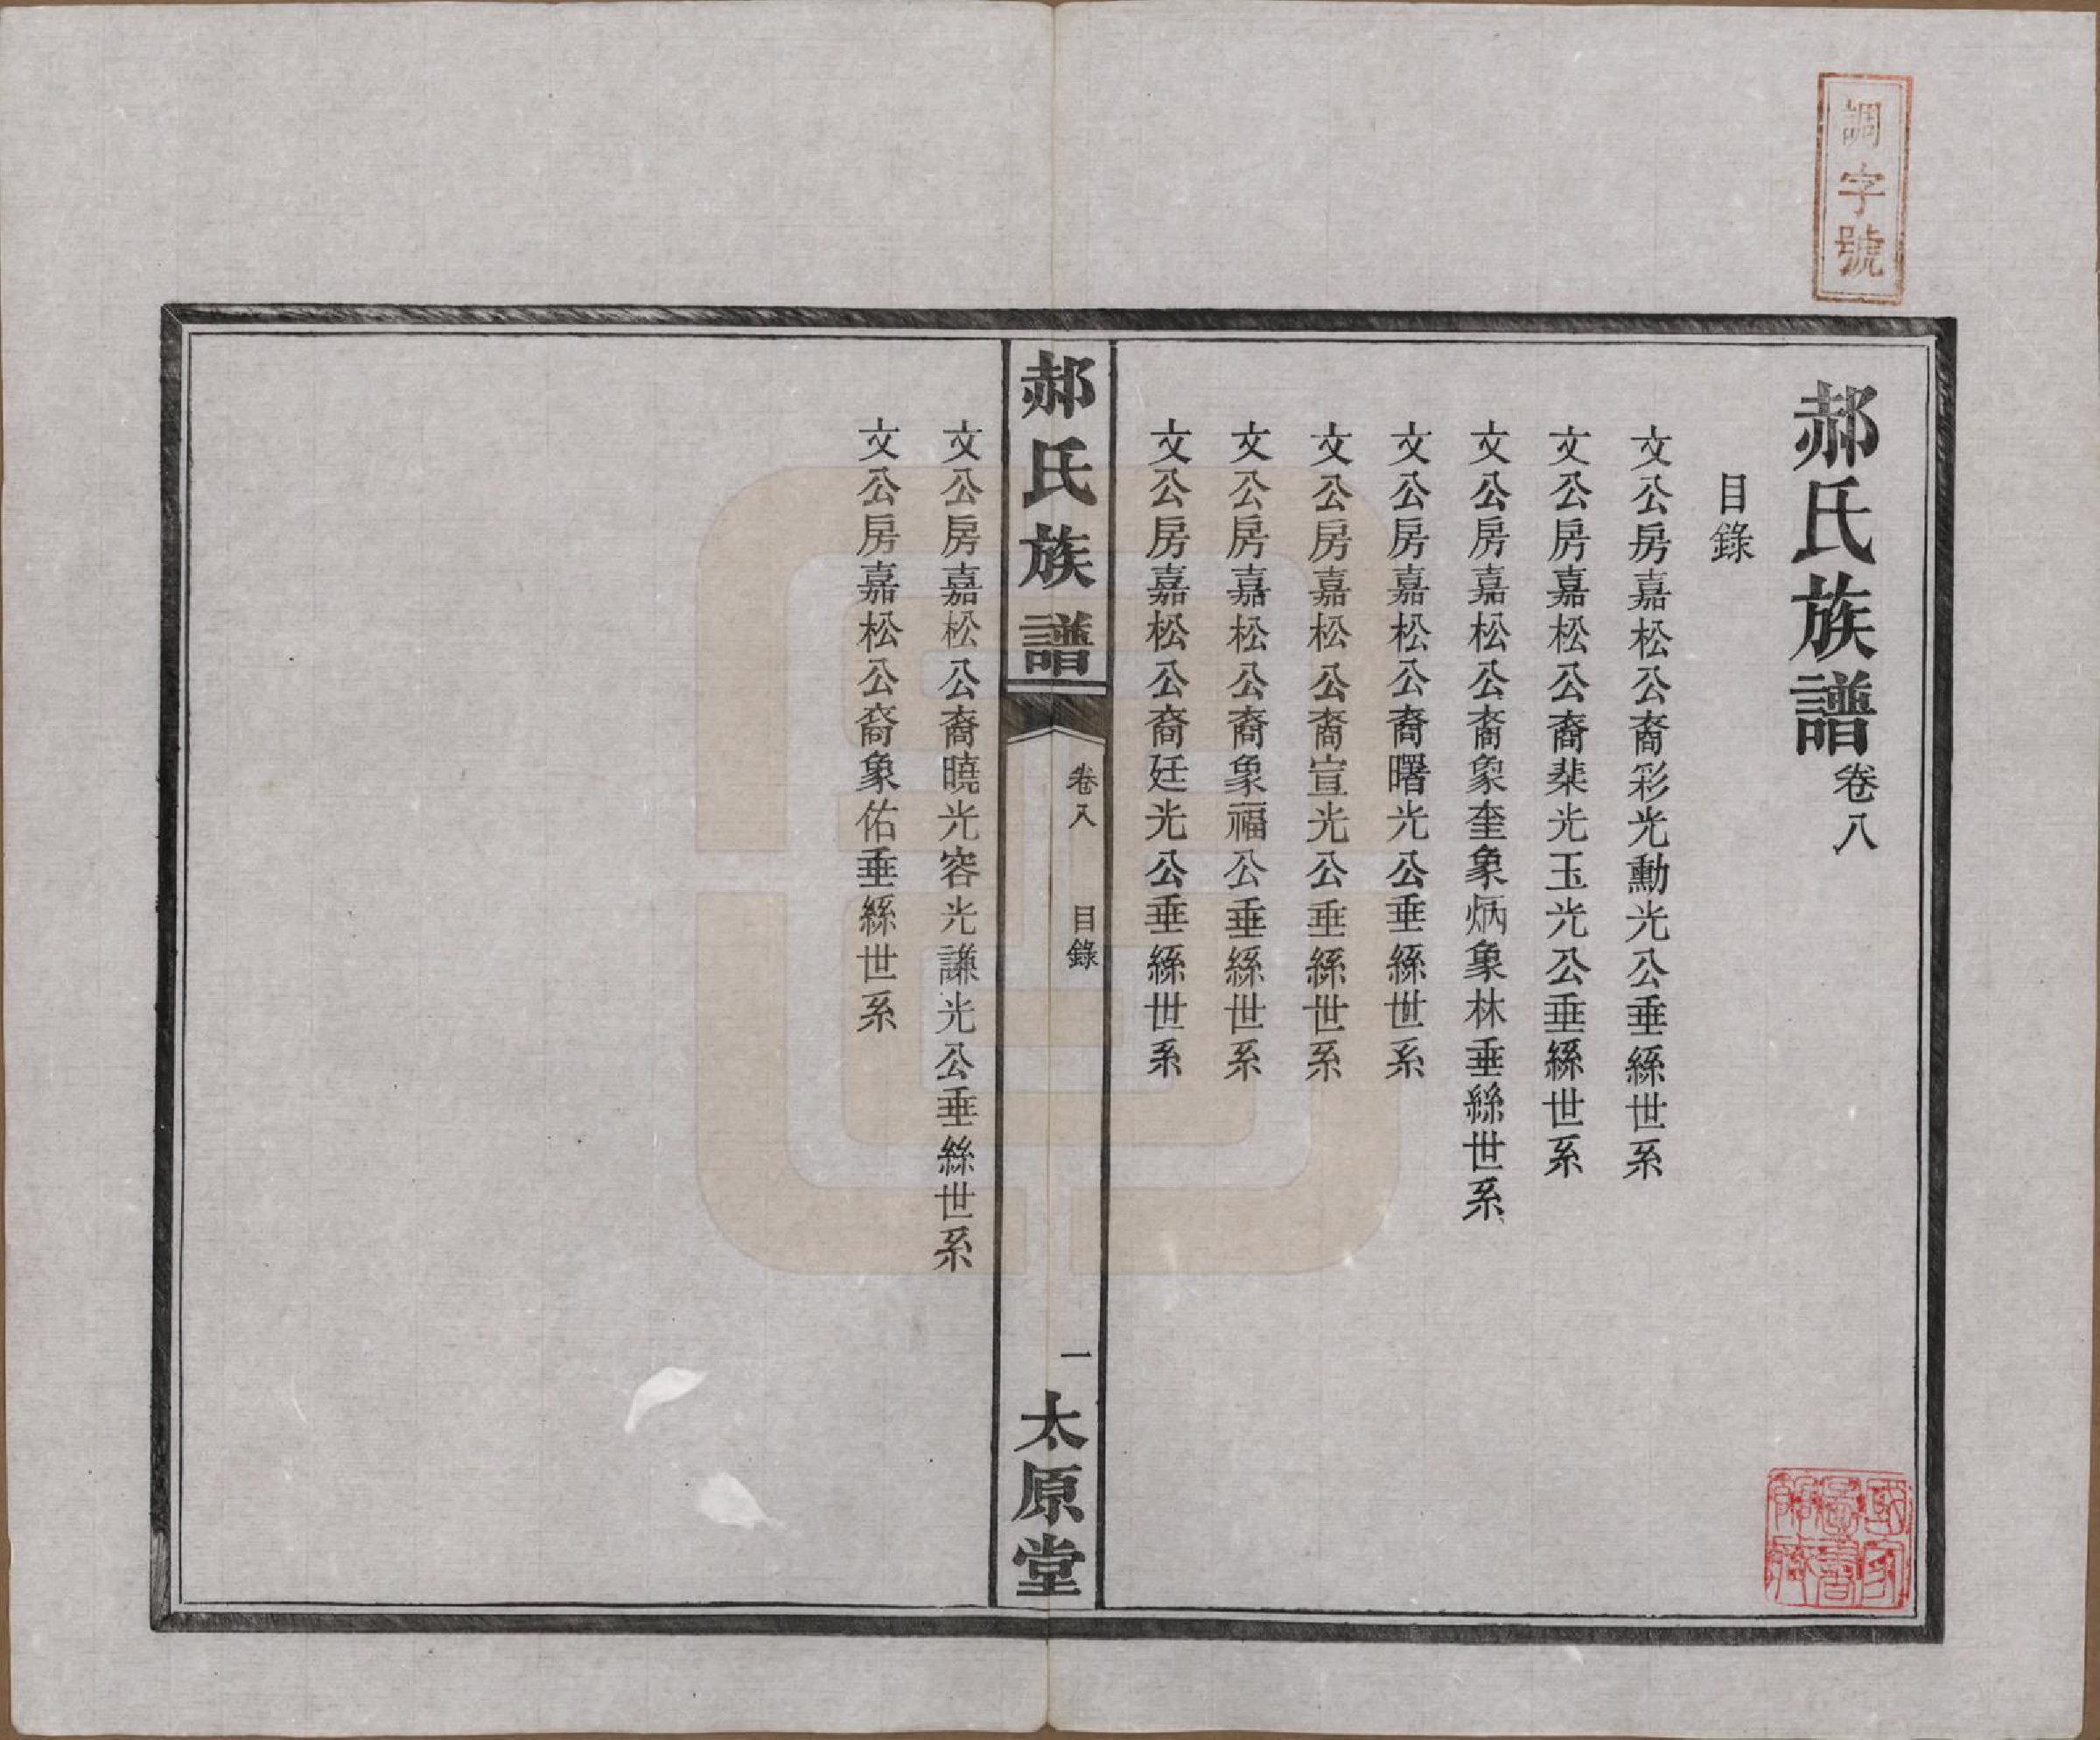 調字號
郝氏族譜卷八
目錄
文公房嘉松公裔彩光勳光公垂絲世系
文公房嘉松公裔棐光玉光公垂絲世系
文公房嘉松公裔象奎象炳象林垂絲世系
文公房嘉松公裔曙光公垂絲世系
文公房嘉松公裔宣光公垂絲世系
文公房嘉松公裔象福公垂絲世系
文公房嘉松公裔廷光公垂絲世系
郝氏族譜
卷八 目錄
一
太原堂
文公房嘉松公裔曉光容光謙光公垂絲世系
文公房嘉松公裔象佑垂絲世系
國家圖書館藏